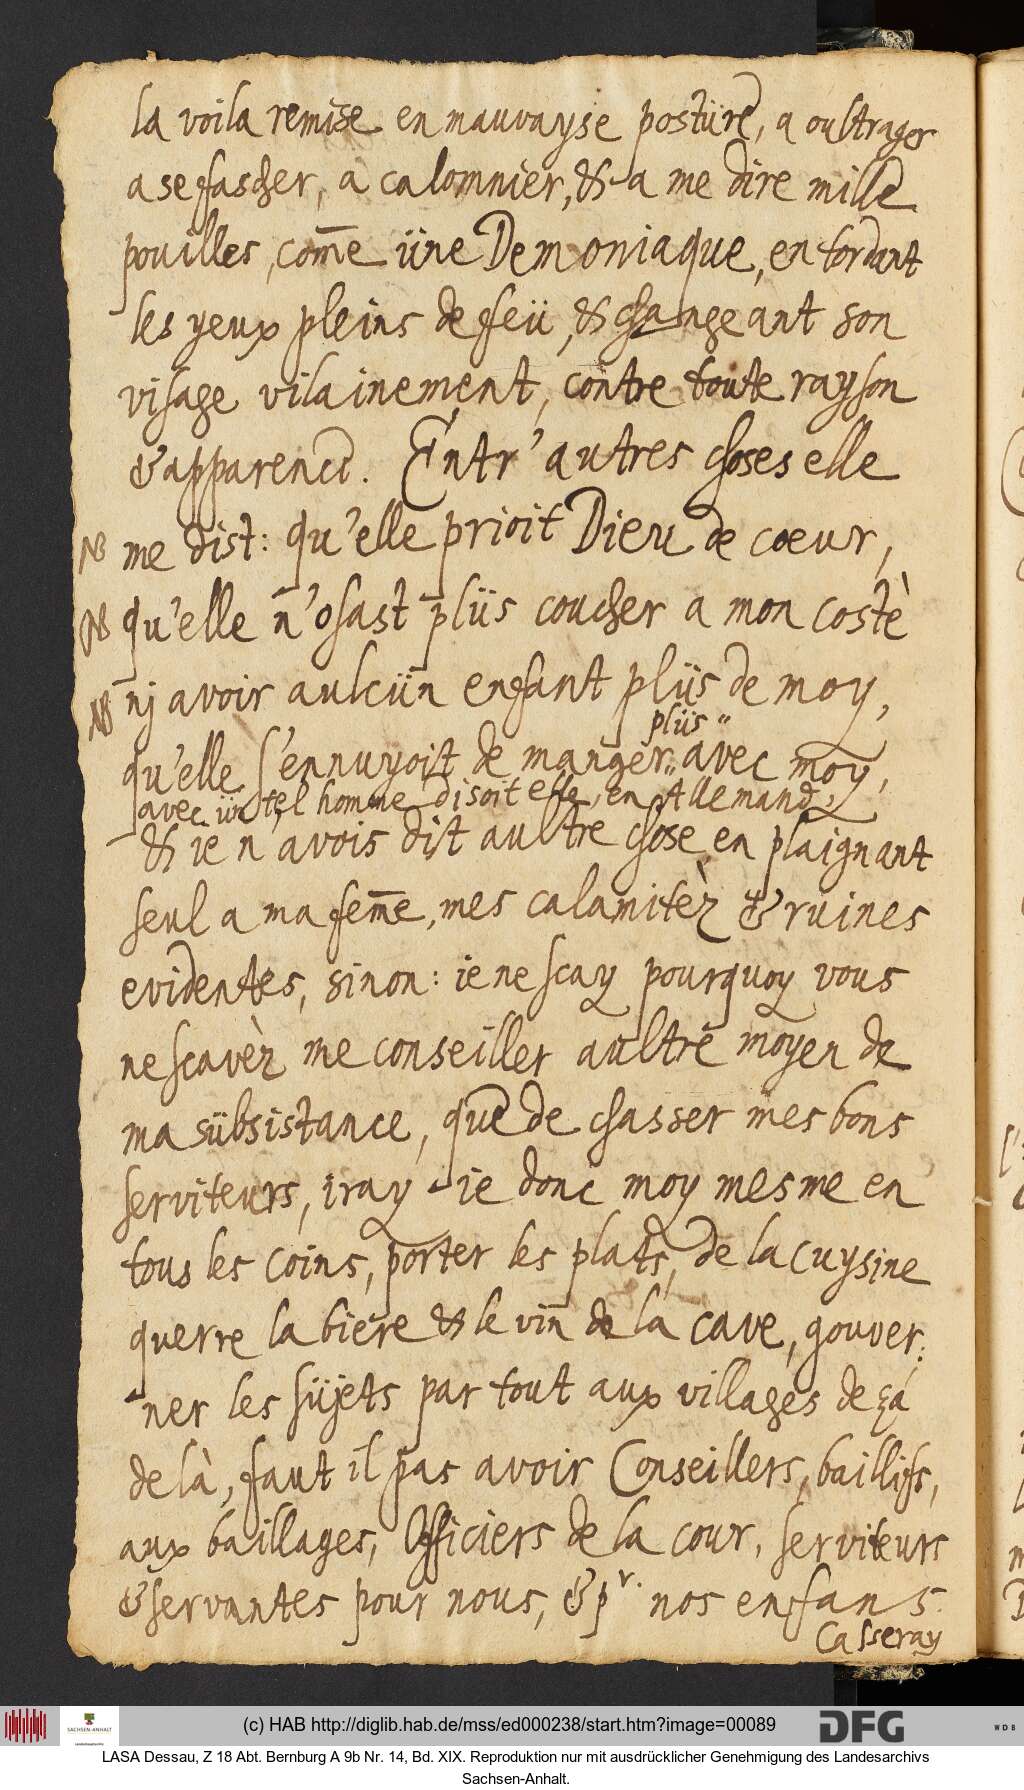 la voila remise en mauvayse postüre, a oultrager
a se fascher, a calomnier, & a me dire mille
pouilles, com̄e üne Demoniaque, en tordant
les yeux pleins de feü, & changeant son
visage vilainement, contre toute rayson
& apparence. Entr'autres choses elle
NB me dist: qu'elle prioit Dieu de coeur,
NB qu'elle n'osast plüs coucher a mon costè
NB nj avoir aulcün enfant plüs de moy,
plüs"
qu'elle s'ennuyoit de manger " avec moy,
avec ün tel homme disoit elle, en Allemand,
& ie n'avois dit aultre chose, en plaignant
seul a ma fem̄e, mes calamitèz & ruines
evidentes, sinon: ie ne scay pourquoy vous
ne scavèz me conseiller aultre moyen de
ma sübsistance, que de chasser mes bons
serviteurs, iray-ie donc moy mesme en
tous les coins, porter les plats, de la cuysine
querre la biere & le vin de la cave, gouver:
ner les süjets par tout aux villages de ça
de là, faut il pas avoir Conseillers, baillifs,
aux baillages, Officiers de la cour, serviteurs
& servantes pour nous, & pr. nos enfans.
Casseray
(c) HAB http://diglib.hab.de/mss/ed000238/start.htm?image=00089
SACHSEN-ANHALT
DFG
WDB
LASA Dessau, Z 18 Abt. Bernburg A 9b Nr. 14, Bd. XIX. Reproduktion nur mit ausdrücklicher Genehmigung des Landesarchivs
Sachsen-Anhalt.